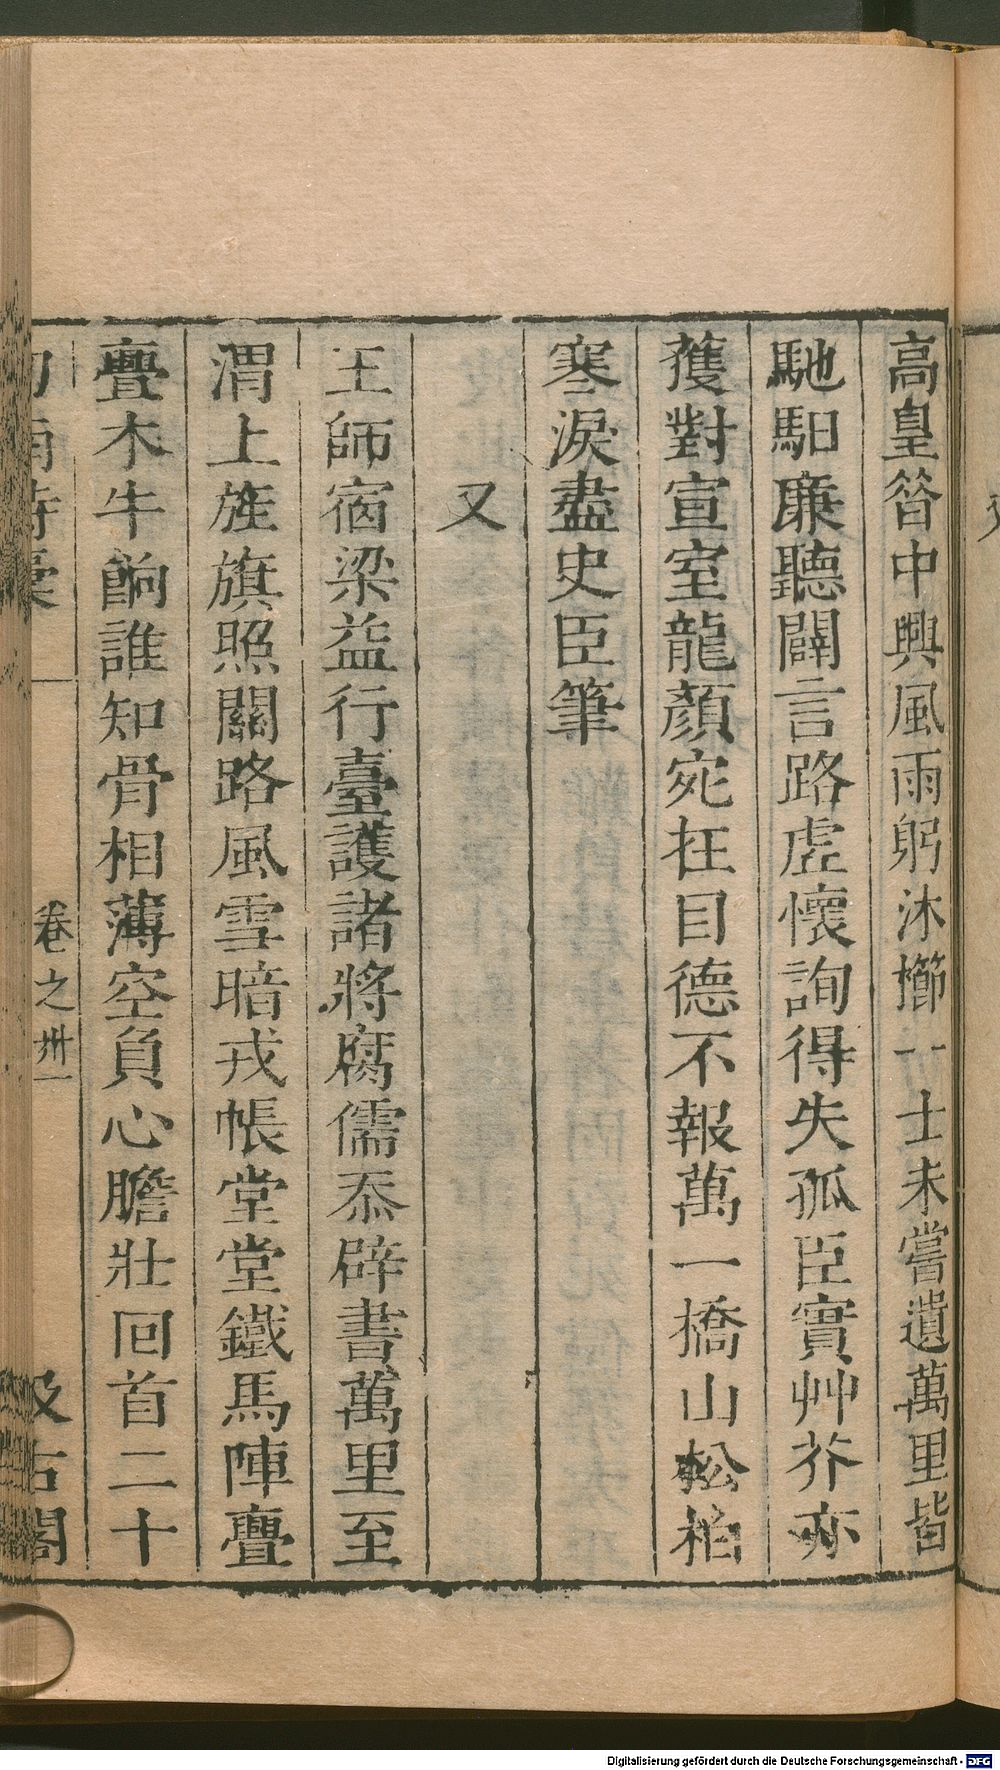 高皇昝中興風雨躬沐櫛一士未嘗遺萬里皆
馳馹廉聽闢言路虛懷詢得失孤臣實艸芥亦
獲對宣室龍顏宛在目德不報萬一橋山松柏
寒淚盡史臣筆
又
王師宿梁益行臺護諸將腐儒忝辟書萬里至
渭上旌旗照關路風雪暗戎帳堂堂鐵馬陣亹
亹木牛餉誰知骨相薄空負心膽壯回首二十
劍南詩稾
卷之卅一
汲古閣
Digitalisierung gefördert durch die Deutsche Forschungsgemeinschaft - DFG